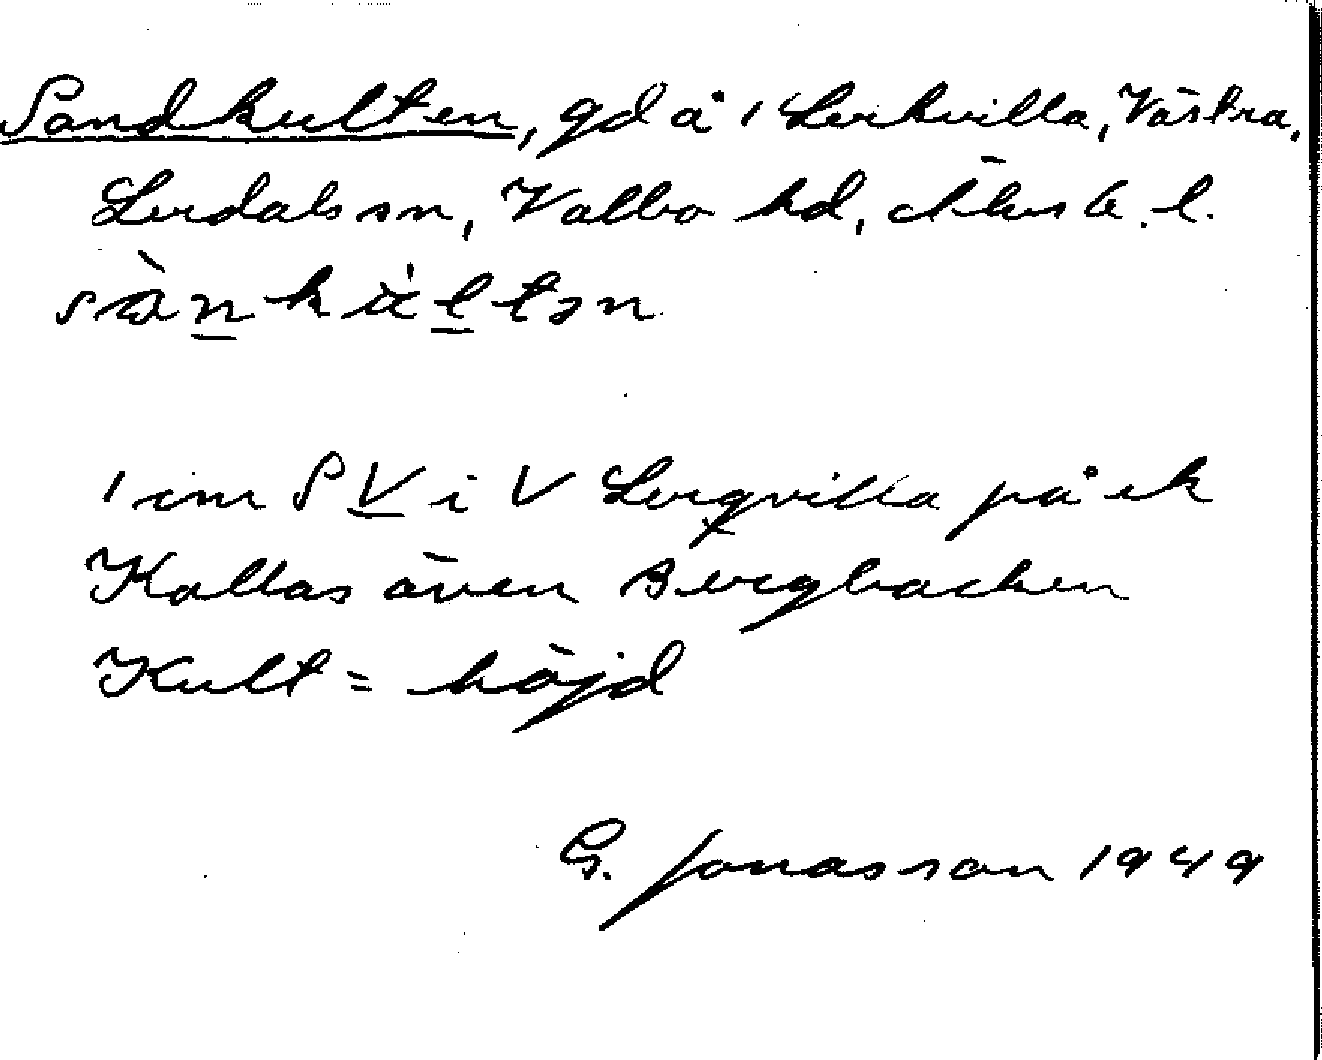 Sandkulten, gd å 1 Lerkvilla, Västra,
Lerdals sn, Valbo hd, Älvsb. l.
sànku̇ltən
1 im SV i V Lergvilla på ek
Kallas även Bergbacken
Kult = höjd
G. Jonasson 1949